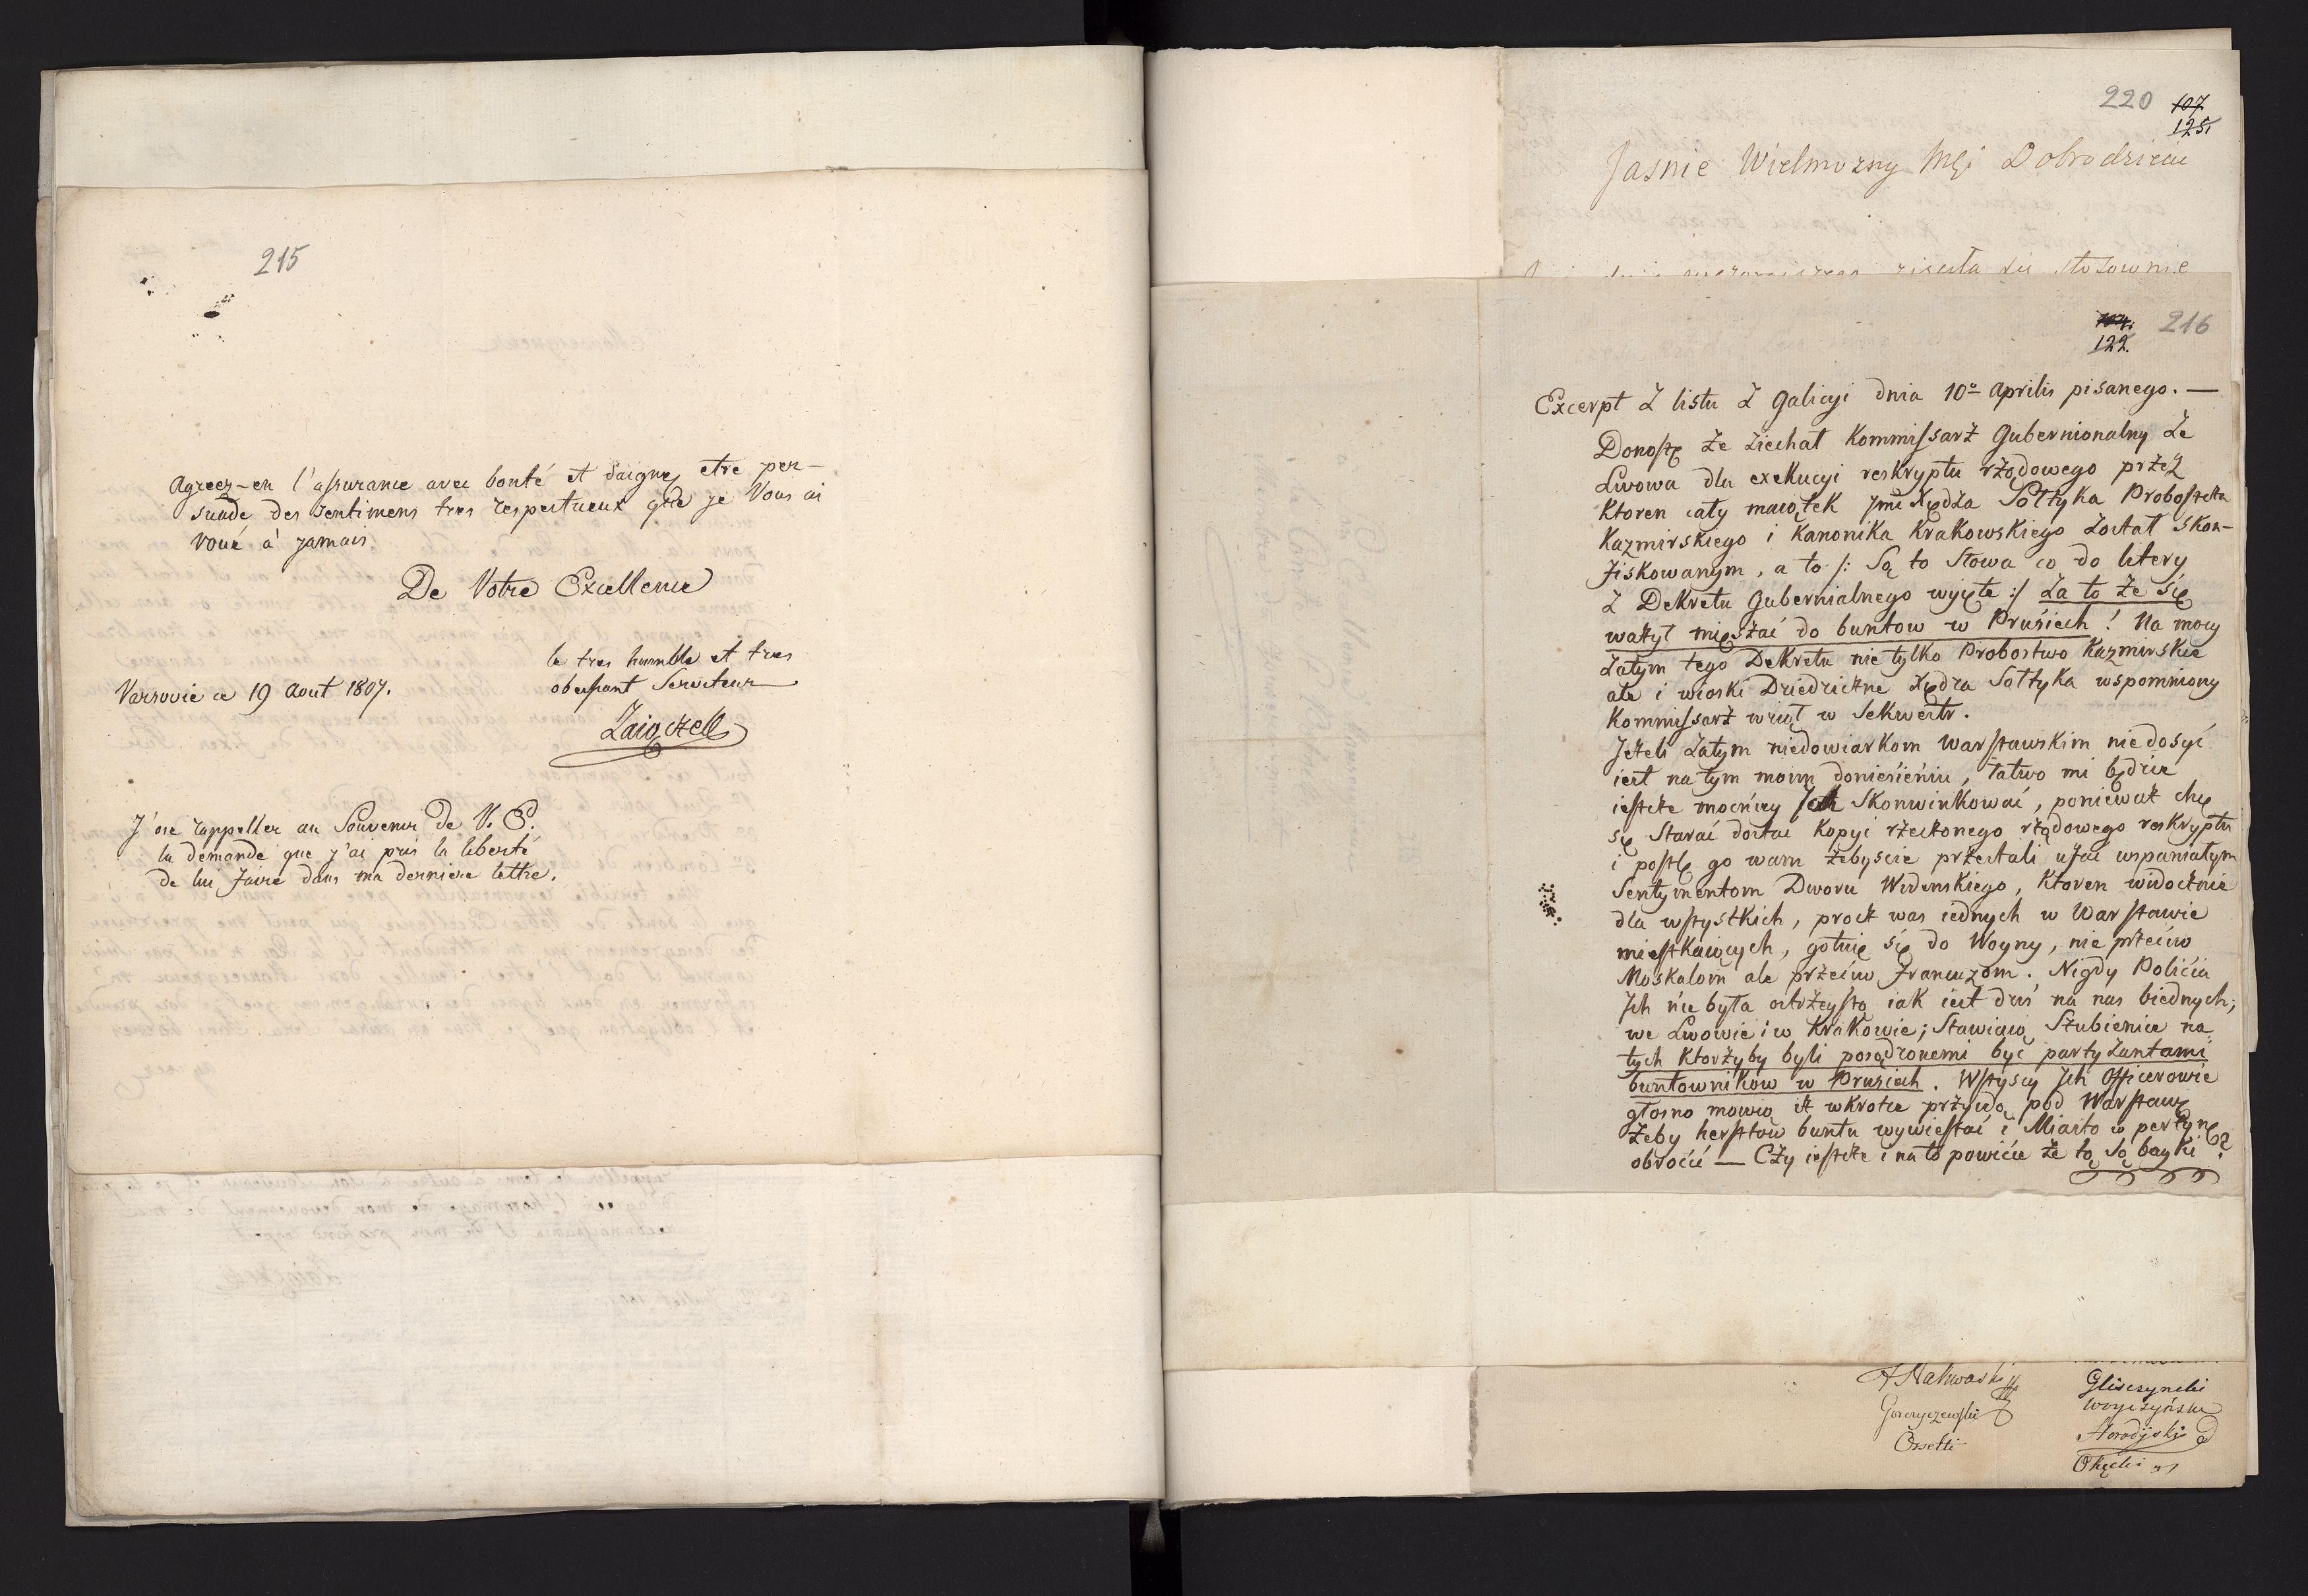 215
Agreez-en l'assurance avec bonté et daignez etre per-
suadé des sentimens tres respectueux que je Vous ai
voué à jamais
De Votre Excellence
le tres humble et tres
obeissant Serviteur
Varsovie ce 19 Aout 1807.
Zaiączek
J'ose rappeller au Souvenir de V. E.
la demande que j'ai pris la liberté
de lui faire dans ma derniere lettre.
220 107
125.
Jasnie Wielmozny Mci Dobrodzieiu
zisciła się stosownie
104. 216
122.
Excerpt z listu z Galicyi dnia 10º Aprilis pisanego. —
Donoszę że ziechał Kommissarz Gubernionalny ze
Lwowa dla exekucyi reskryptu rządowego przez
ktoren cały maiątek Jmć Xiędza Sołtyka Proboszcza
Kazmirskiego i Kanonika Krakowskiego został skon-
fiskowanym, a to /: Są to słowa co do litery
z Dekretu Gubernialnego wyięte :/ za to że się
ważył mięszać do buntow w Prusiech! Na mocy
zatym tego Dekretu nie tylko Probostwo Kazmirskie
ale i wioski Dziedziczne Xiędza Sołtyka wspomniony
Kommissarz wziął w Sekwestr.
Jeżeli zatym niedowiarkom Warszawskim niedosyć
iest na tym moim doniesieniu, łatwo mi będzie
ieszcze mocniey Ich skonwinkować, ponieważ chcę
się starać dostać Kopyi rzeczonego rządowego reskryptu
i poszlę go wam żebyscie przestali ufać wspaniałym
Sentymentom Dworu Widenskiego, ktoren widocznie
dla wszystkich, procz was iednych w Warszawie
mieszkaiących, gotuię się do Woyny, nie przeciw
Moskalom ale przeciw Francuzom. Nigdy Policia
Ich nie była ostrzeyszą iak iest dziś na nas biednych;
we Lwowie i w Krakowie; Stawiaią Szubienice na
tych ktorzyby byli posądzonemi być partyzantami
buntownikow w Prusiech. Wszyscy Ich Officerowie
głosno mowią iż wkrotce przyidą pod Warszawę
żeby hersztow buntu wywieszać i Miasto w perzynę
obrocić — Czy ieszcze i na to powicie że to są bayki?
A Nakwaski
Gliszczynski
Goreyczewski
Woyczyński
Ossetti
Horodyski
Okęcki